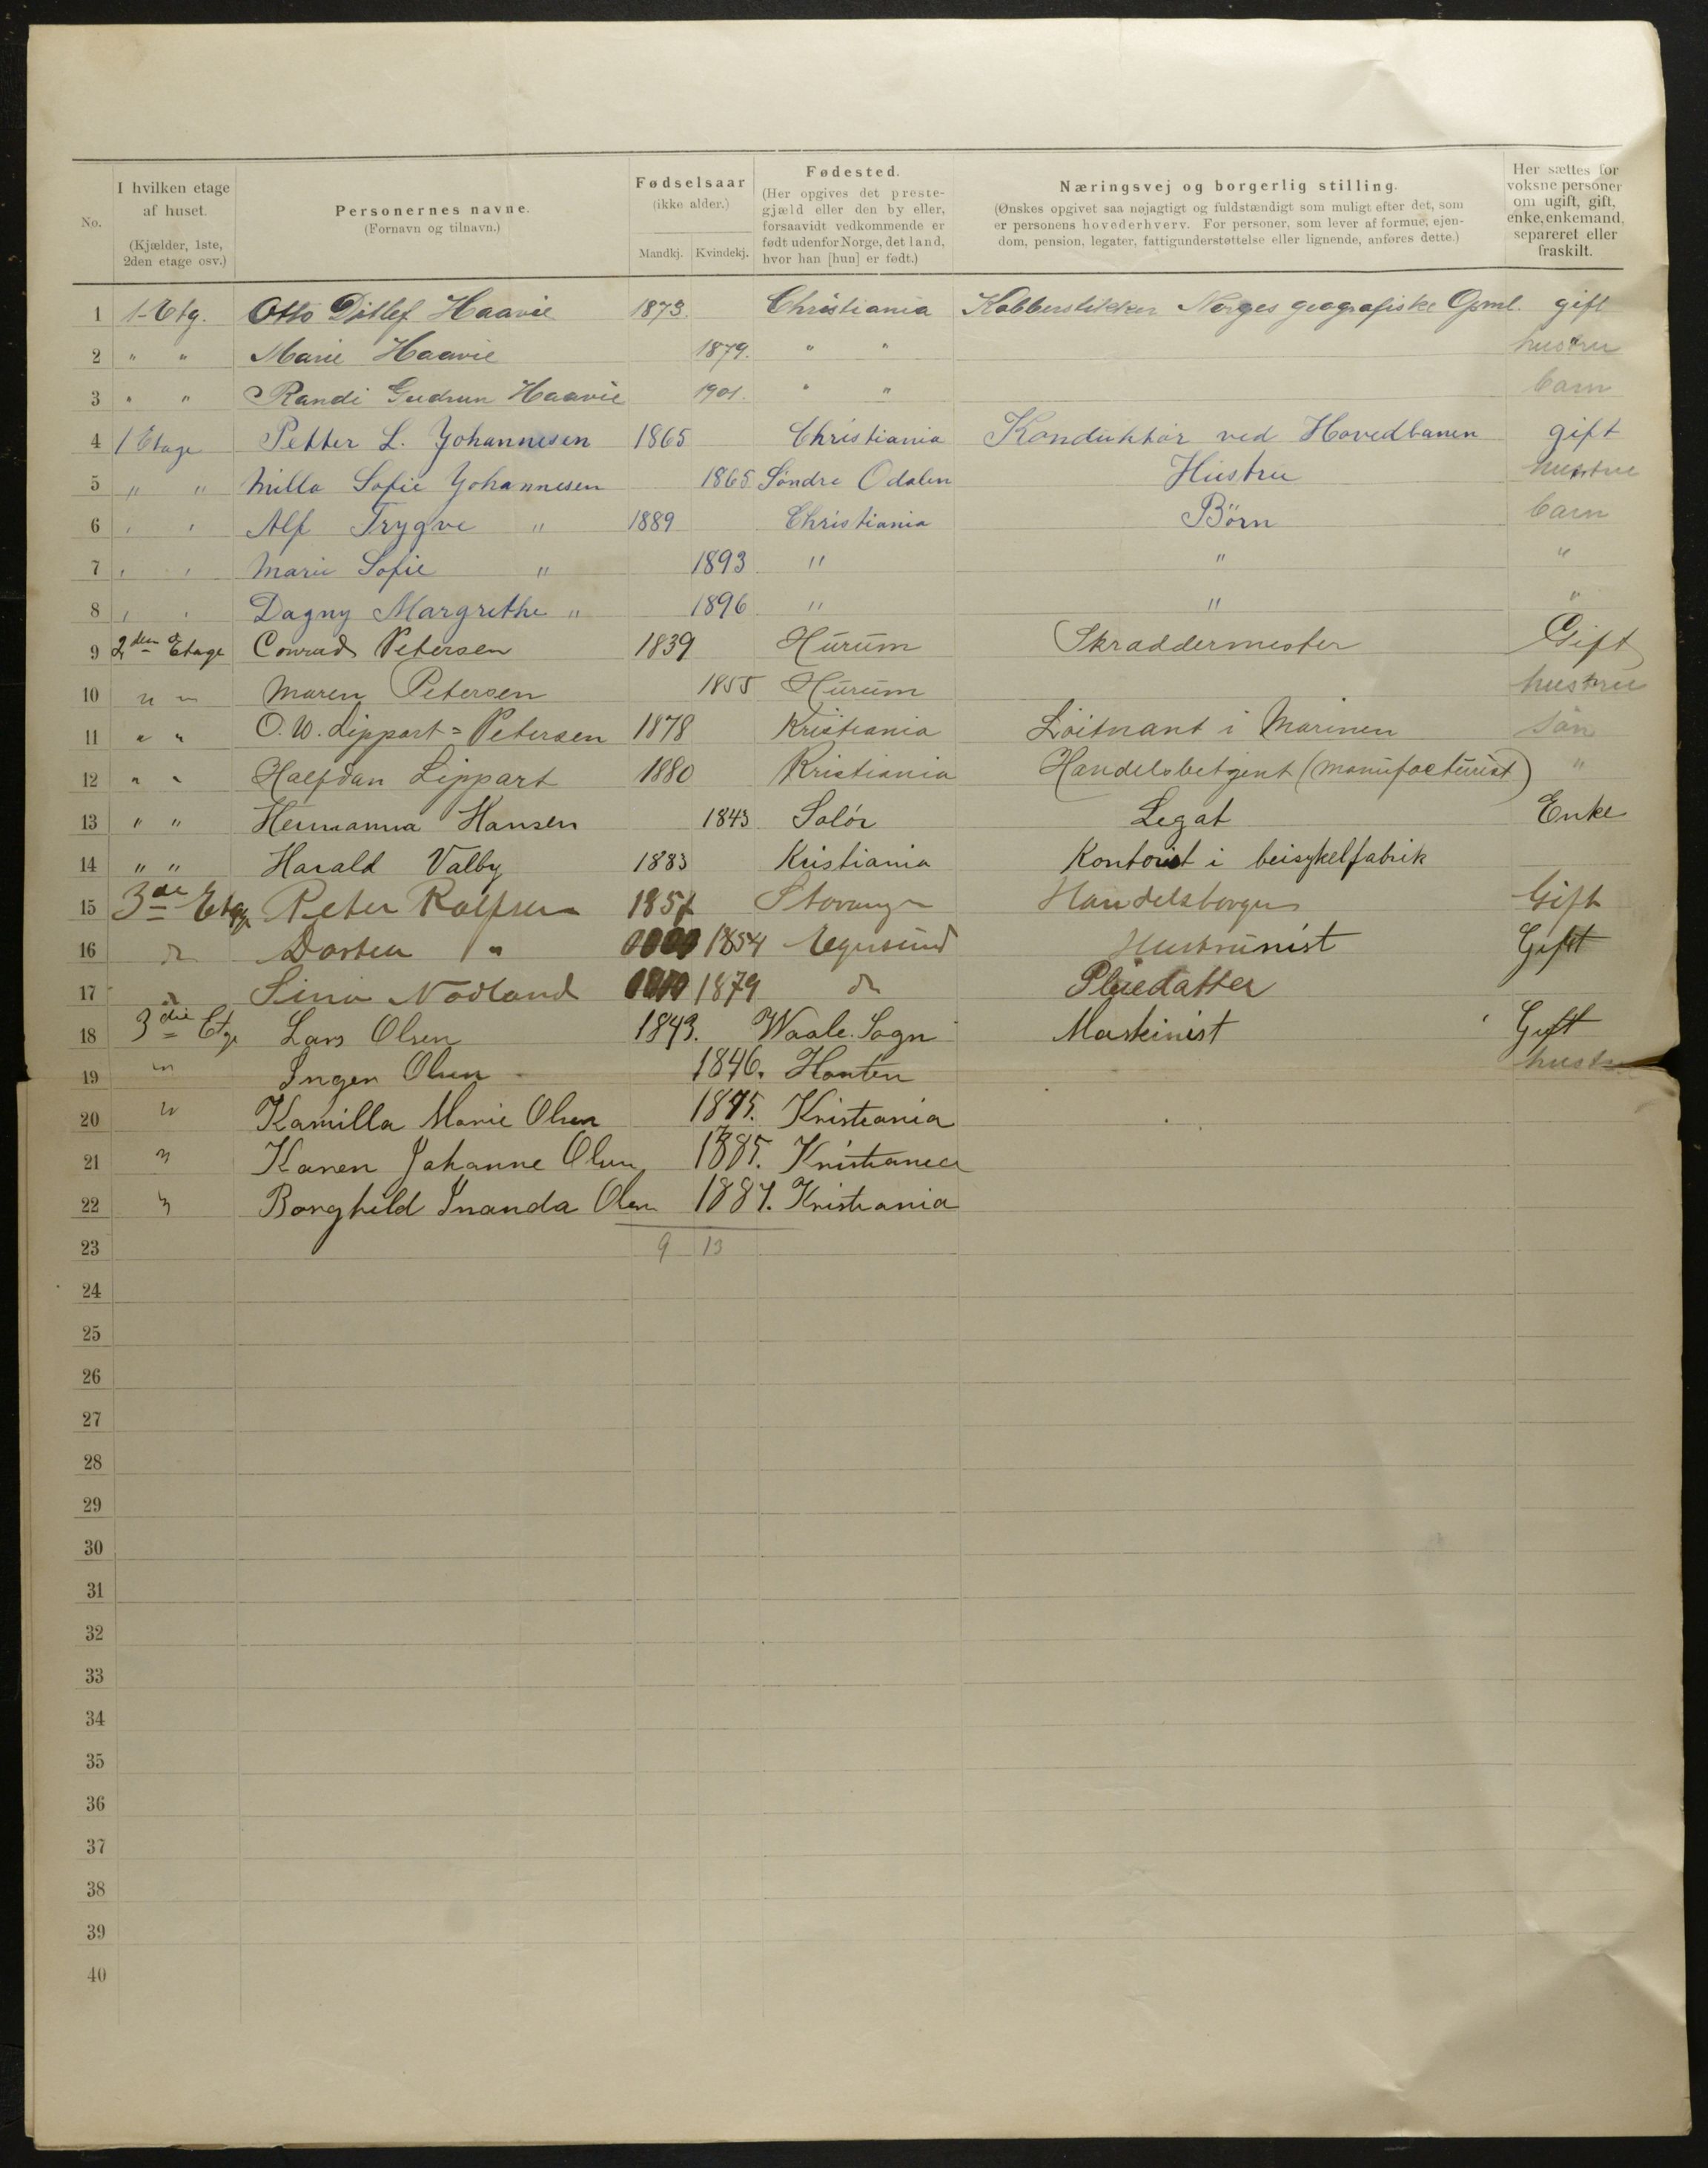 No. | I hvilken etage af huset. (Kjælder, 1ste, 2den etage osv.) | Personernes navne. (Fornavn og tilnavn.) | Fødselsaar (ikke alder.) Mandkj. Kvindekj. | Fødested. (Her opgives det prestegjæld eller den by eller, forsaavidt vedkommende er født udenfor Norge, det land, hvor han [hun] er født.) | Næringsvej og borgerlig stilling. (Ønskes opgivet saa nøjagtigt og fuldstændigt som muligt efter det, som er personens hovederhverv. For personer, som lever af formue, ejendom, pension, legater, fattigunderstøttelse eller lignende, anføres dette.) | Her sættes for voksne personer om ugift, gift, enke, enkemand, separeret eller fraskilt.
1 1 Etg. Otto Ditlef Haavie 1873. Christiania Kobberstikker Norges geografiske Opml. gift
2 " " Marie Haavie 1879. " " hustru
3 " " Randi Gudrun Haavie 1901. " " barn
4 1 Etage Petter L. Johannesen 1865 Christiania Konduktør ved Hovedbanen gift
5 " " Milla Sofie Johannesen 1865 Søndre Odalen Hustru hustru
6 " " Alf Trygve " 1889 Christiania Børn barn
7 " " Marie Sofie " 1893 " " "
8 " " Dagny Margrethe " 1896 " " "
9 2den Etage Conrad Petersen 1839 Hurum Skraddermester Gift
10 " " Maren Petersen 1855 Hurum hustru
11 " " O. W. Lippart=Petersen 1878 Kristiania Løitnant i Marinen søn
12 " " Halfdan Lippart 1880 Kristiania Handelsbetjent (manufacturist) "
13 " " Hermanna Hansen 1843 Solør Legat Enke
14 " " Harald Valby 1883 Kristiania Kontorist i beisykelfabrik
15 3de Etage Peter Rolfsen 1857 Stavanger Handelsborger Gift
16 do " 1854 Egersund Gift
17 do Nodland 1879 do Pleiedatter
18 3die Etg Lars Olsen 1843. Waale Sogn Maskinist Gift
19 " Inger Olsen 1846. hustru
20 " Kamilla Marie Olsen 1875. Kristiania
21 " Karen Johanne Olsen 1885. Kristiania
22 " Borghild Olsen 1887. Kristiania
23 9 13
24
25
26
27
28
29
30
31
32
33
34
35
36
37
38
39
40